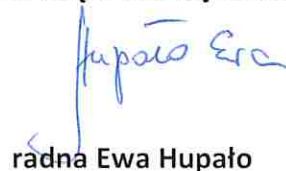 Hupało Ewa
radna Ewa Hupało